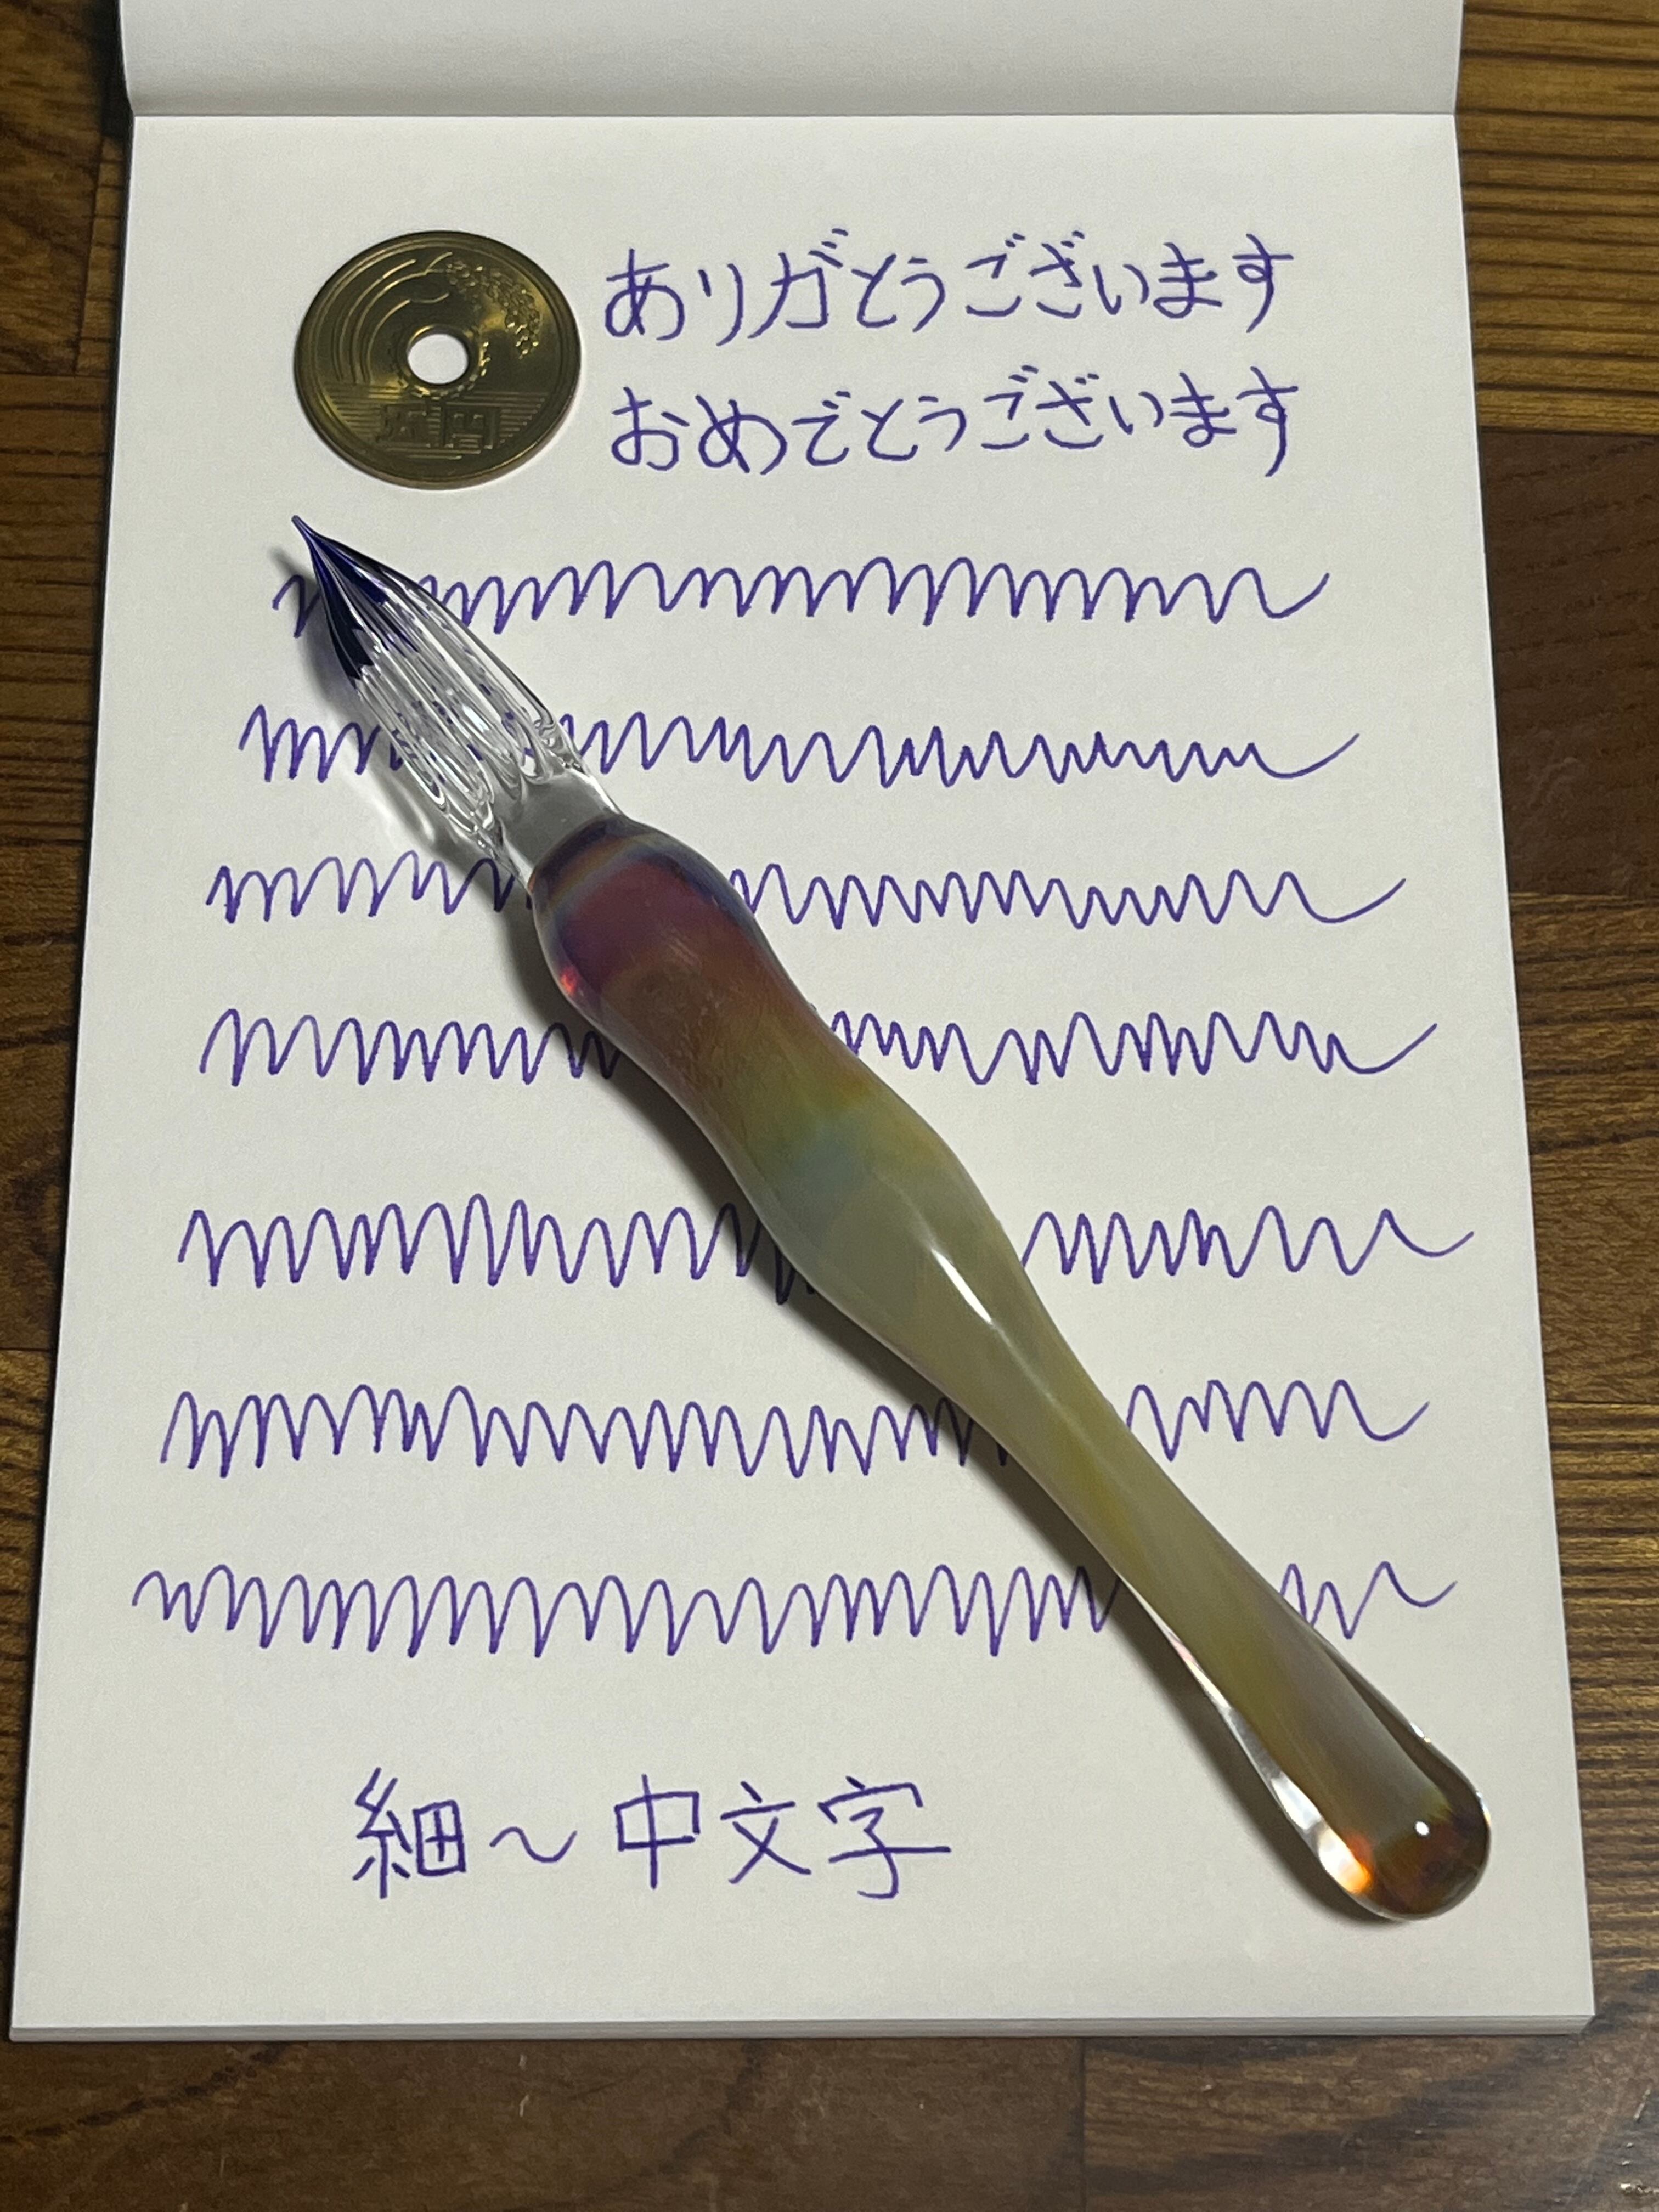 ありがとうございます
おめでとうございます
五円
細〜中文字